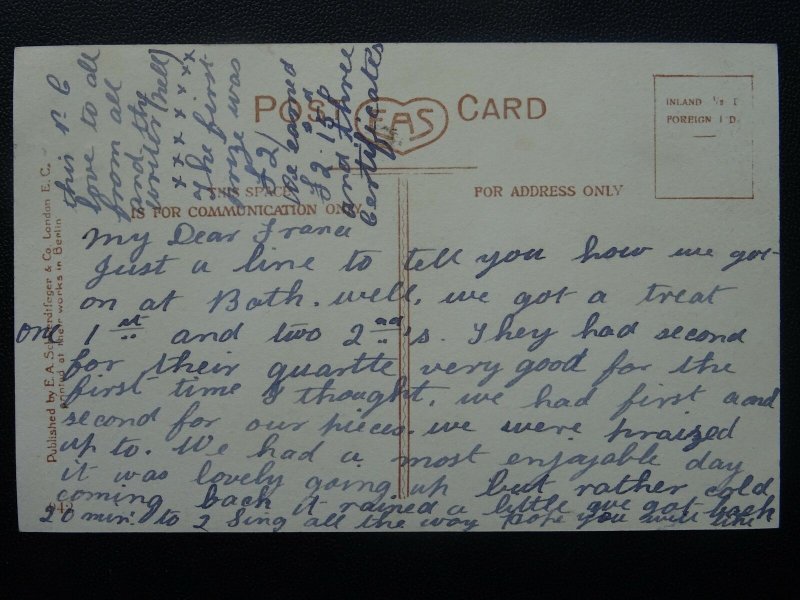 POST CARD
EAS
INLAND ½ D
FOREIGN 1 D.
THIS SPACE
IS FOR COMMUNICATION ONLY
FOR ADDRESS ONLY
Published by E.A. Schwerdtfeger & Co. London E.C.
Printed at their works in Berlin
My Dear
Just a line to tell you how we got
on at Bath. well, we got a treat
one 1st and two 2nd's. They had second
for their quartte very good for the
first time I thought. we had first and
second for our pieces. we were praized
up to. We had a most enjoyable day
it was lovely going up but rather cold
coming back it rained a little we got back
20 min. to 2 Sing all the way hope you will like
this P.C
love to all
from all
and the
writer (Nell)
x x x x x x x
The first
prize was
£2/
We earned
£2.15
and three
Certificates